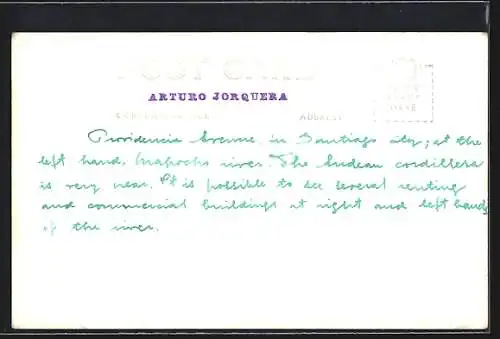 POST CARD
ARTURO JORQUERA
CORRESPONDENCE ADDRESS
Providencia Avenue, in Santiago city; at the
left hand, Mapocho river. The Andean cordillera
is very near. It is possible to see several renting
and commercial buildings at right and left hands
of the river.